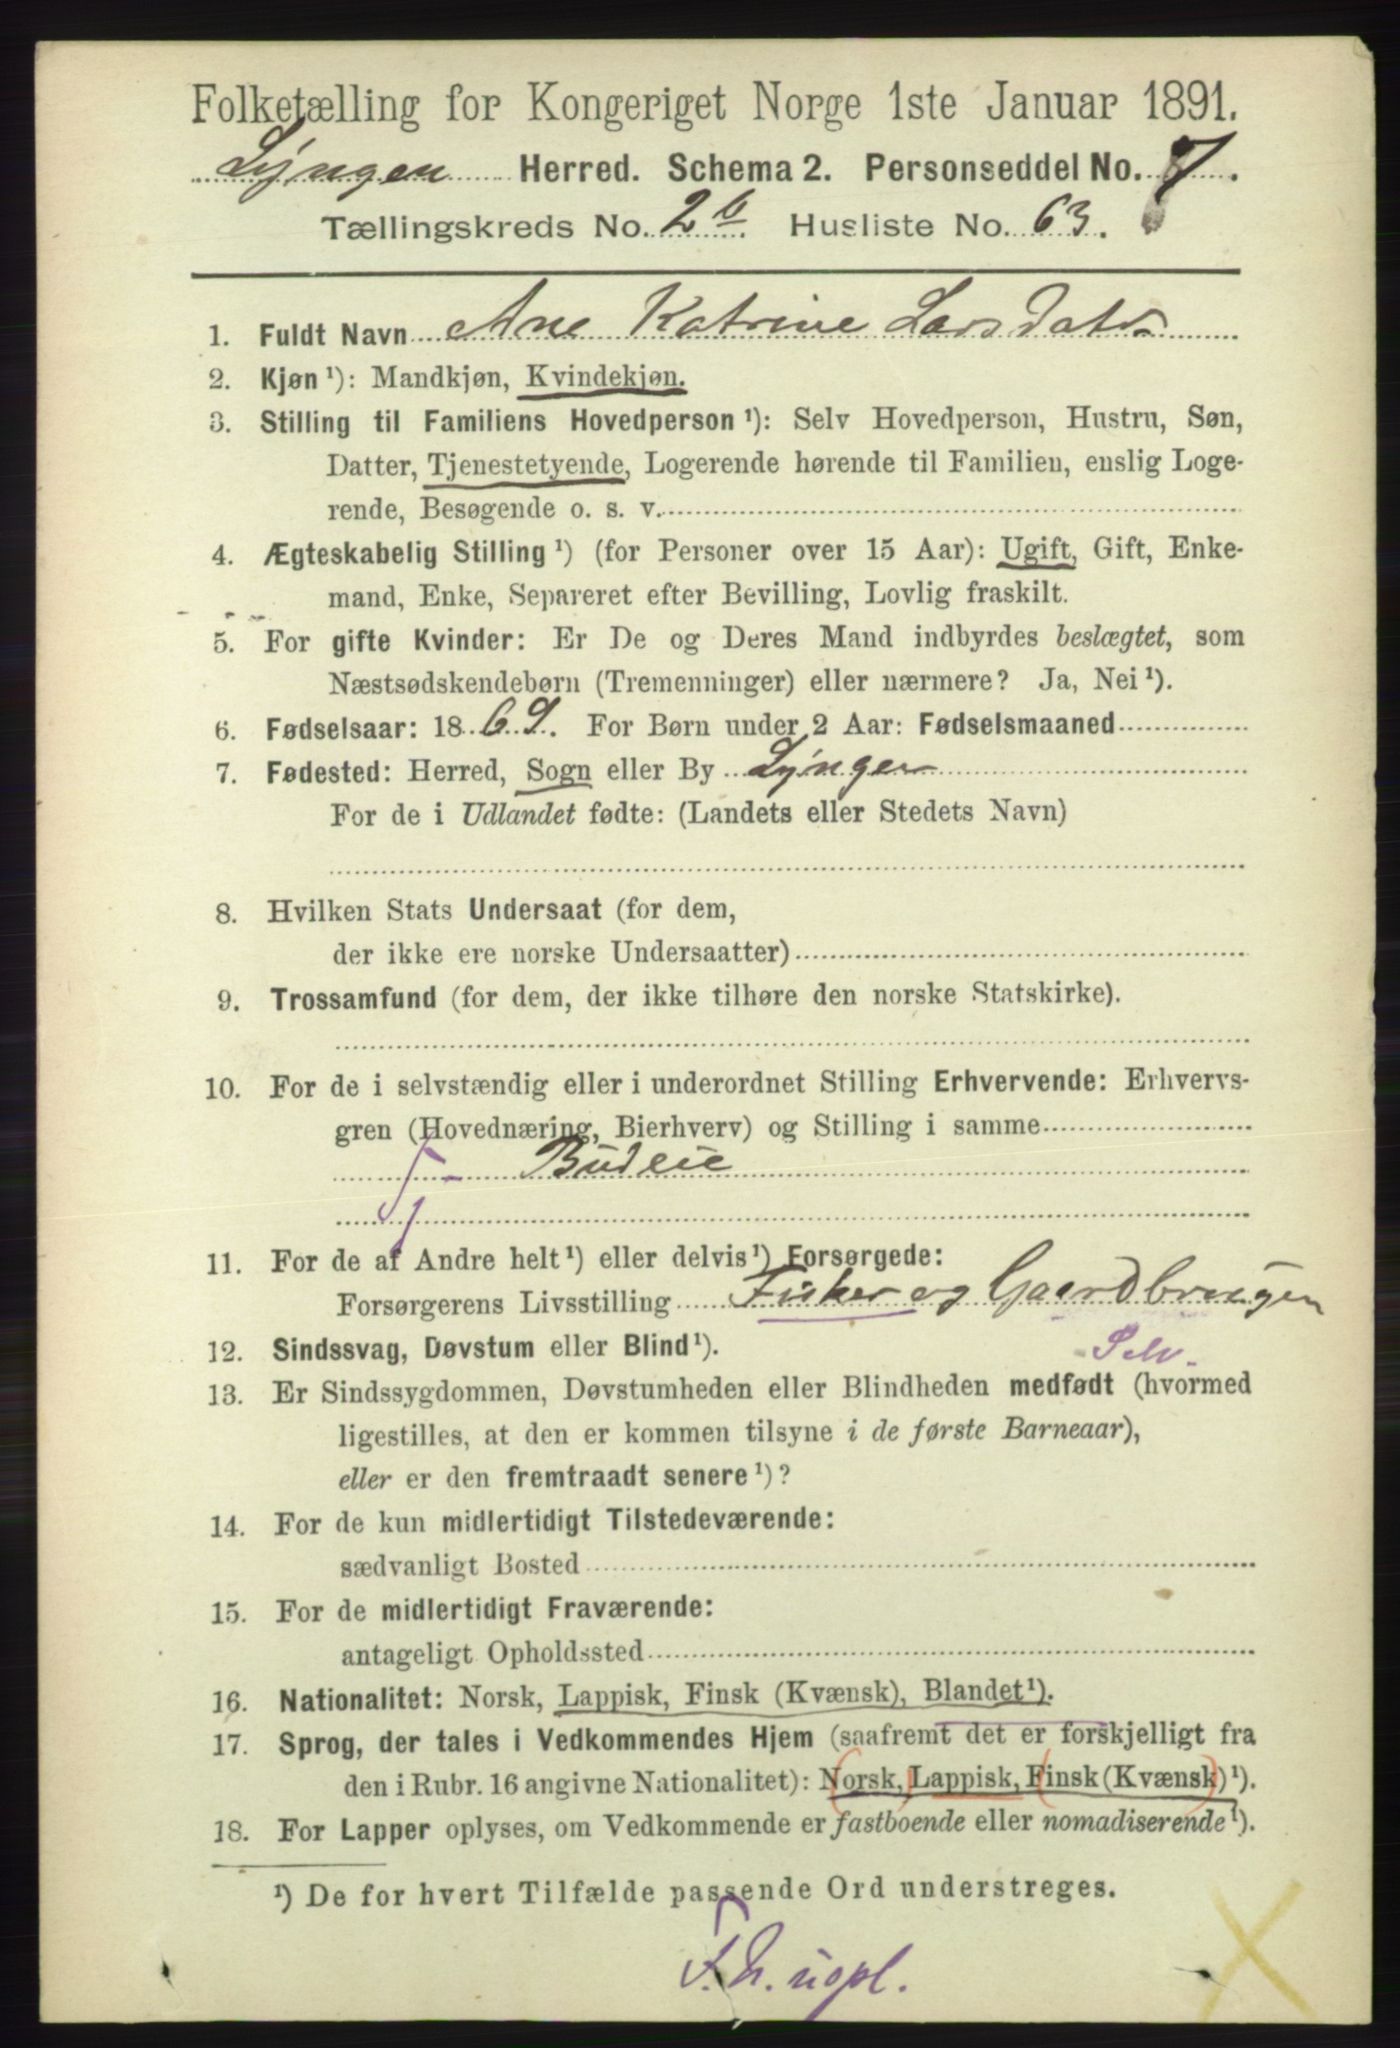 Folketælling for Kongeriget Norge 1ste Januar 1891.
Lyngen Herred. Schema 2. Personseddel No. 7.
Tællingskreds No. 2b. Husliste No. 63.
1. Fuldt Navn Ane Katrine Larsdatr
2. Kjøn ¹): Mandkjøn, Kvindekjøn.
3. Stilling til Familiens Hovedperson ¹): Selv Hovedperson, Hustru, Søn,
Datter, Tjenestetyende, Logerende hørende til Familien, enslig Loge-
rende, Besøgende o. s. v.
4. Ægteskabelig Stilling ¹) (for Personer over 15 Aar): Ugift, Gift, Enke-
mand, Enke, Separeret efter Bevilling, Lovlig fraskilt.
5. For gifte Kvinder: Er De og Deres Mand indbyrdes beslægtet, som
Næstsødskendebørn (Tremenninger) eller nærmere? Ja, Nei ¹).
6. Fødselsaar: 1869. For Børn under 2 Aar: Fødselsmaaned
7. Fødested: Herred, Sogn eller By Lyngen
For de i Udlandet fødte: (Landets eller Stedets Navn)
8. Hvilken Stats Undersaat (for dem,
der ikke ere norske Undersaatter)
9. Trossamfund (for dem, der ikke tilhøre den norske Statskirke).
10. For de i selvstændig eller i underordnet Stilling Erhvervende: Erhvervs-
gren (Hovednæring, Bierhverv) og Stilling i samme
Budeie
11. For de af Andre helt ¹) eller delvis ¹) Forsørgede:
Forsørgerens Livsstilling Fisker og Gaardbrugen
12. Sindssvag, Døvstum eller Blind ¹). Selv.
13. Er Sindssygdommen, Døvstumheden eller Blindheden medfødt (hvormed
ligestilles, at den er kommen tilsyne i de første Barneaar),
eller er den fremtraadt senere ¹)?
14. For de kun midlertidigt Tilstedeværende:
sædvanligt Bosted
15. For de midlertidigt Fraværende:
antageligt Opholdssted
16. Nationalitet: Norsk, Lappisk, Finsk (Kvænsk), Blandet ¹).
17. Sprog, der tales i Vedkommendes Hjem (saafremt det er forskjelligt fra
den i Rubr. 16 angivne Nationalitet): Norsk, Lappisk, Finsk (Kvænsk) ¹).
18. For Lapper oplyses, om Vedkommende er fastboende eller nomadiserende ¹).
¹) De for hvert Tilfælde passende Ord understreges.